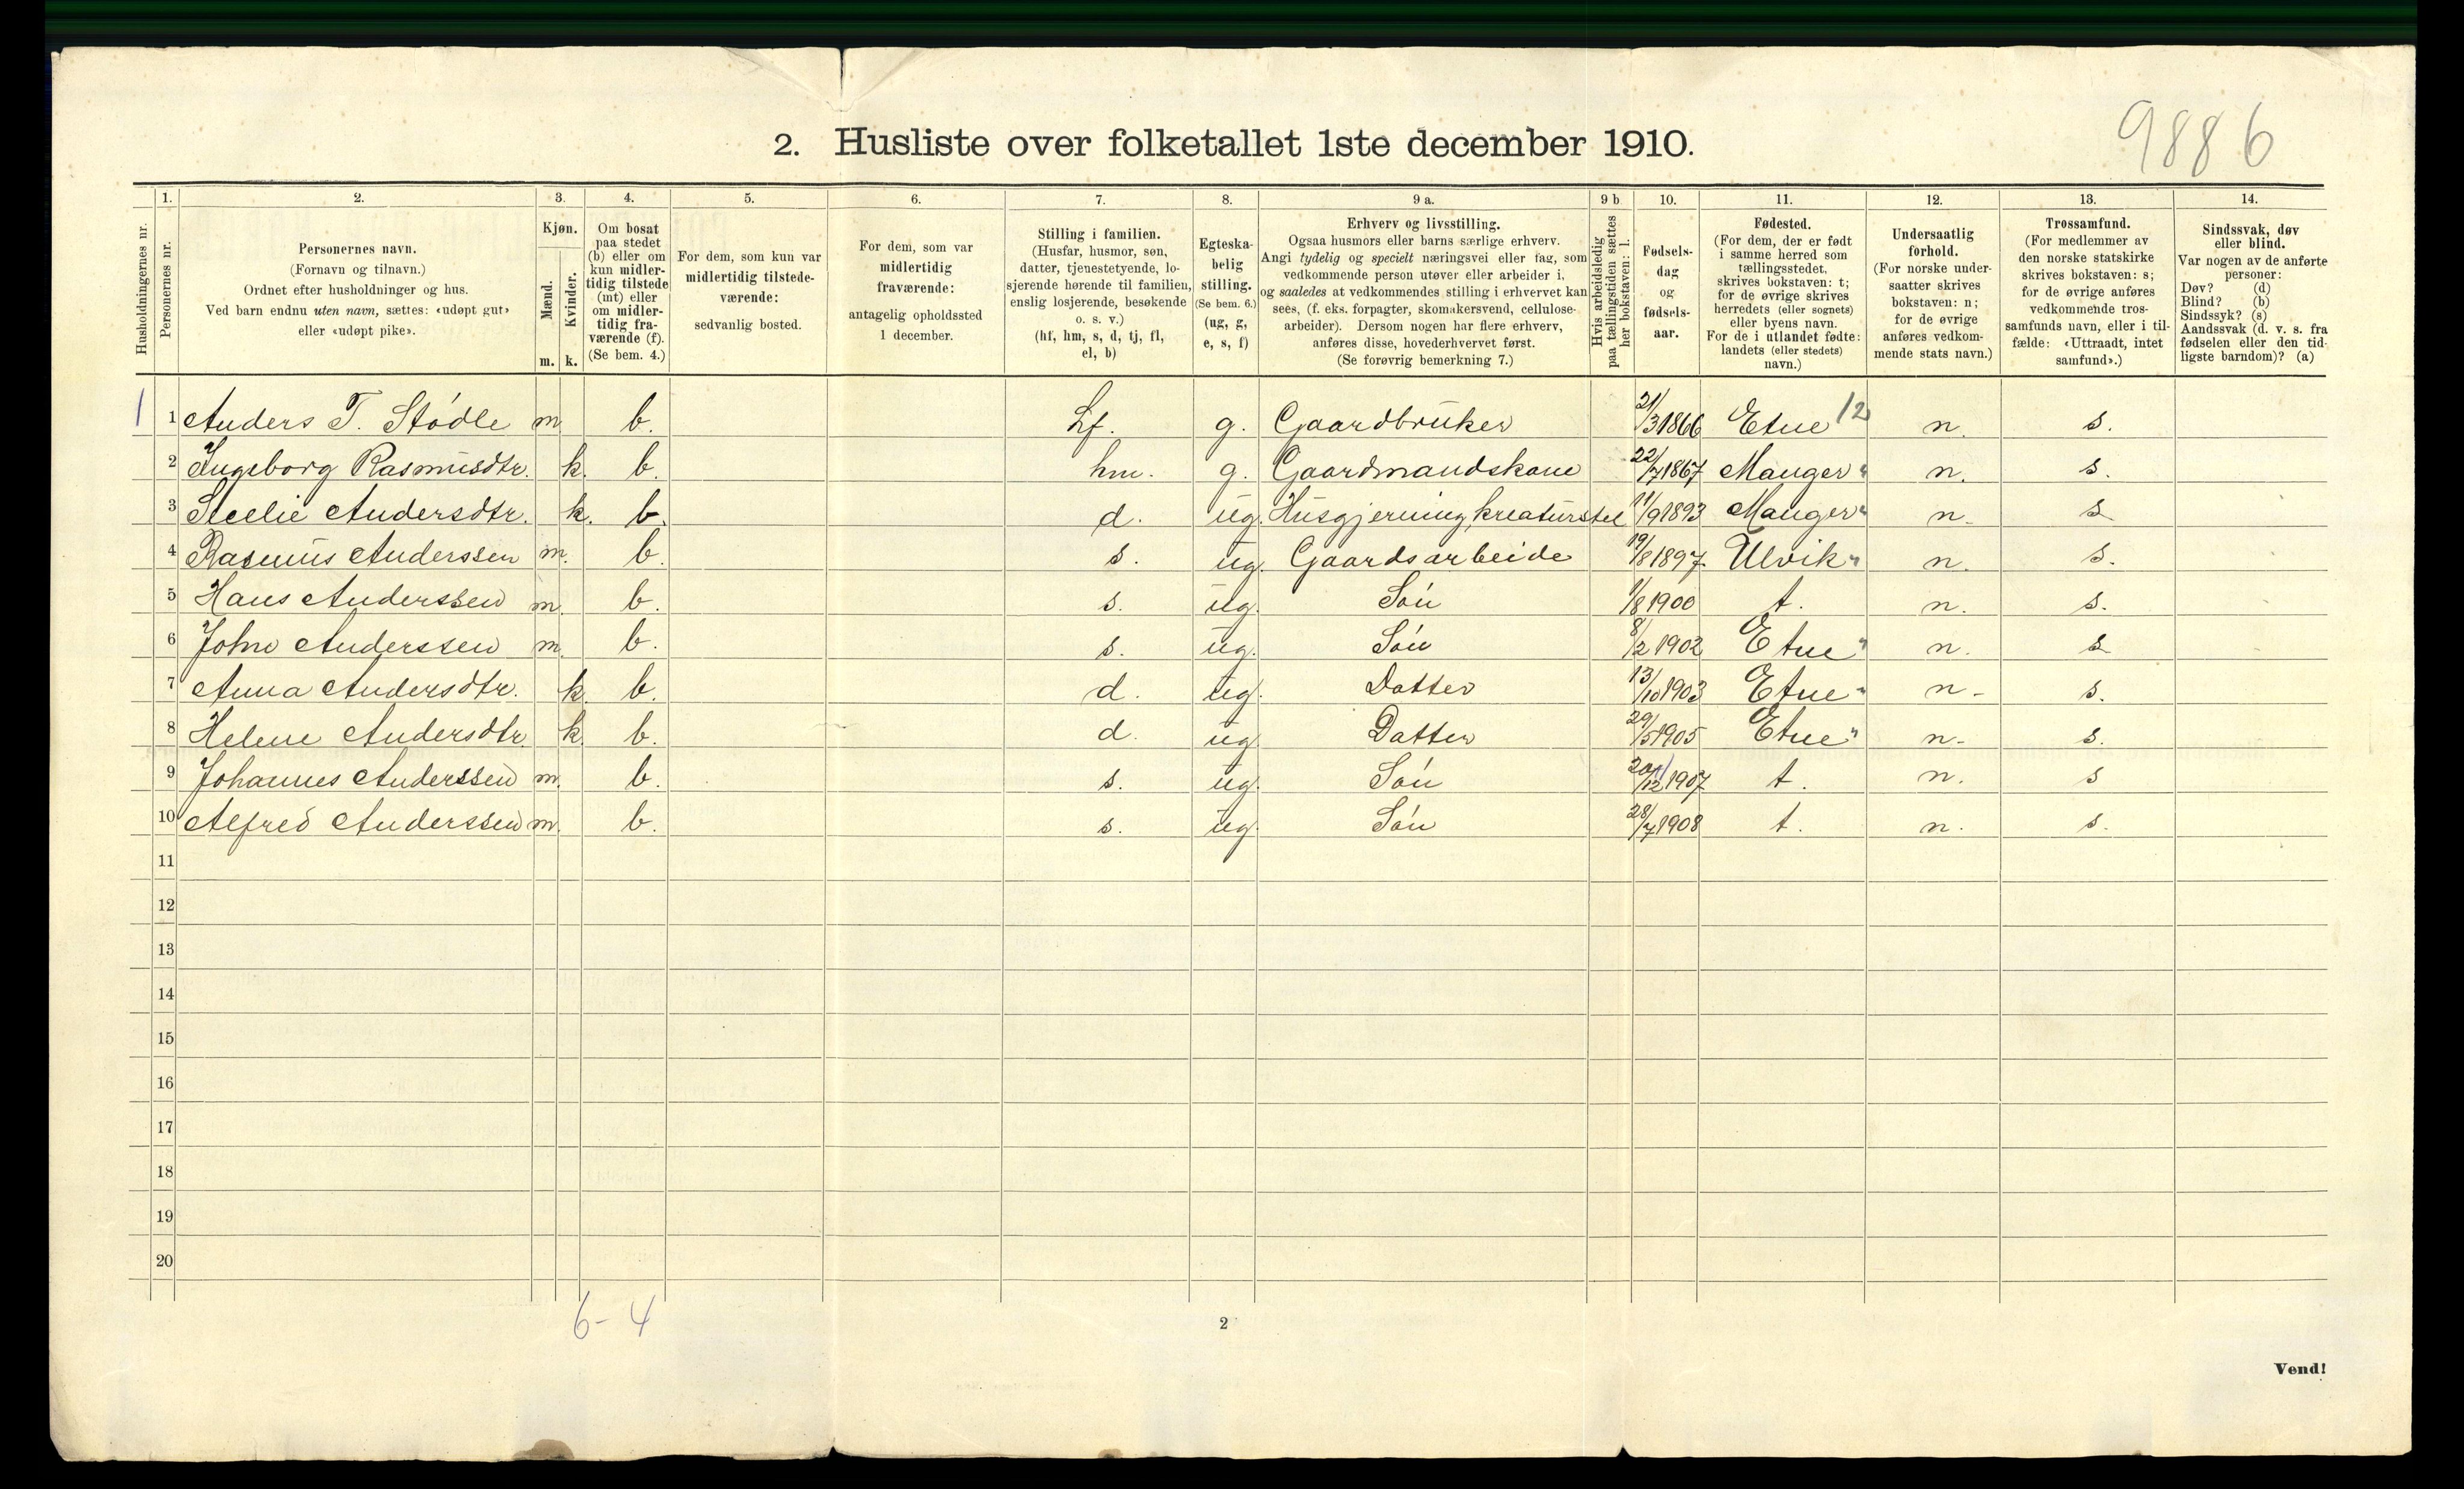 9886
2. Husliste over folketallet 1ste december 1910.
Husholdningernes nr.
1.
Personernes nr.
2.
Personernes navn.
(Fornavn og tilnavn.)
Ordnet efter husholdninger og hus.
Ved barn endnu uten navn, sættes: «udøpt gut»
eller «udøpt pike».
3.
Kjøn.
Mænd.
m.
Kvinder.
k.
4.
Om bosat
paa stedet
(b) eller om
kun midler-
tidig tilstede
(mt) eller
om midler-
tidig fra-
værende (f).
(Se bem. 4.)
5.
For dem, som kun var
midlertidig tilstede-
værende:
sedvanlig bosted.
6.
For dem, som var
midlertidig
fraværende:
antagelig opholdssted
1 december.
7.
Stilling i familien.
(Husfar, husmor, søn,
datter, tjenestetyende, lo-
sjerende hørende til familien,
enslig losjerende, besøkende
o. s. v.)
(hf, hm, s, d, tj, fl,
el, b)
8.
Egteska-
belig
stilling.
(Se bem. 6.)
(ug, g,
e, s, f)
9 a.
Erhverv og livsstilling.
Ogsaa husmors eller barns særlige erhverv.
Angi tydelig og specielt næringsvei eller fag, som
vedkommende person utøver eller arbeider i,
og saaledes at vedkommendes stilling i erhvervet kan
sees, (f. eks. forpagter, skomakersvend, cellulose-
arbeider). Dersom nogen har flere erhverv,
anføres disse, hovederhvervet først.
(Se forøvrig bemerkning 7.)
9 b
Hvis arbeidsledig
paa tællingstiden sættes
her bokstaven: l.
10.
Fødsels-
dag
og
fødsels-
aar.
11.
Fødested.
(For dem, der er født
i samme herred som
tællingsstedet,
skrives bokstaven: t;
for de øvrige skrives
herredets (eller sognets)
eller byens navn.
For de i utlandet fødte:
landets (eller stedets)
navn.)
12.
Undersaatlig
forhold.
(For norske under-
saatter skrives
bokstaven: n;
for de øvrige
anføres vedkom-
mende stats navn.)
13.
Trossamfund.
(For medlemmer av
den norske statskirke
skrives bokstaven: s;
for de øvrige anføres
vedkommende tros-
samfunds navn, eller i til-
fælde: «Uttraadt, intet
samfund».)
14.
Sindssvak, døv
eller blind.
Var nogen av de anførte
personer:
Døv? (d)
Blind? (b)
Sindssyk? (s)
Aandssvak (d. v. s. fra
fødselen eller den tid-
ligste barndom)? (a)
1 1 Anders T. Stødle m. b. hf. g. Gaardbruker 21/3 1866 Etne 12 n. s.
2 Ingeborg Rasmusdtr. k. b. hm. g. Gaardmandskone 22/7 1867 Manger " n. s.
3 k. b. d. ug. Husgjerning, kreaturstel 11/9 1893 Manger " n. s.
4 Rasmus Anderssen m. b. s. ug. Gaardsarbeide 19/8 1897 Ulvik " n. s.
5 Hans Anderssen m. b. s. ug. Søn 1/8 1900 t. n. s.
6 John Anderssen m. b. s. ug. Søn 8/2 1902 Etne " n. s.
7 Anna Andersdtr. k. b. d. ug. Datter 13/10 1903 Etne " n. s.
8 Helene Andersdtr. k. b. d. ug. Datter 29/5 1905 Etne " n. s.
9 Johannes Anderssen m. b. s. ug. Søn 1907 t. n. s
10 Alfred Anderssen m. b. s. ug. Søn 28/7 1908 t. n. s.
11
12
13
14
15
16
17
18
19
20
6-4
2
Vend!